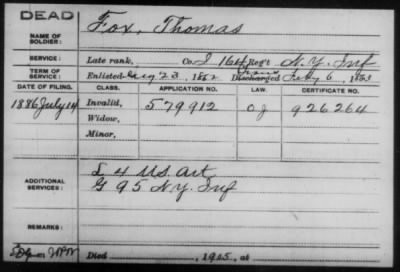 DEAD
NAME OF SOLDIER: Fox, Thomas
SERVICE: Late rank, Co. I 164 Reg't N.Y. Inf
TERM OF SERVICE: Enlisted Aug 23, 1862 Trans Discharged Feby 6, 1863
DATE OF FILING. CLASS. APPLICATION NO. LAW. CERTIFICATE NO.
1886 July 14 Invalid, 579912 926264
Widow,
Minor,
ADDITIONAL SERVICES: L 4 U.S. Art
G 95 N.Y. Inf
REMARKS:
Died, 1905, at